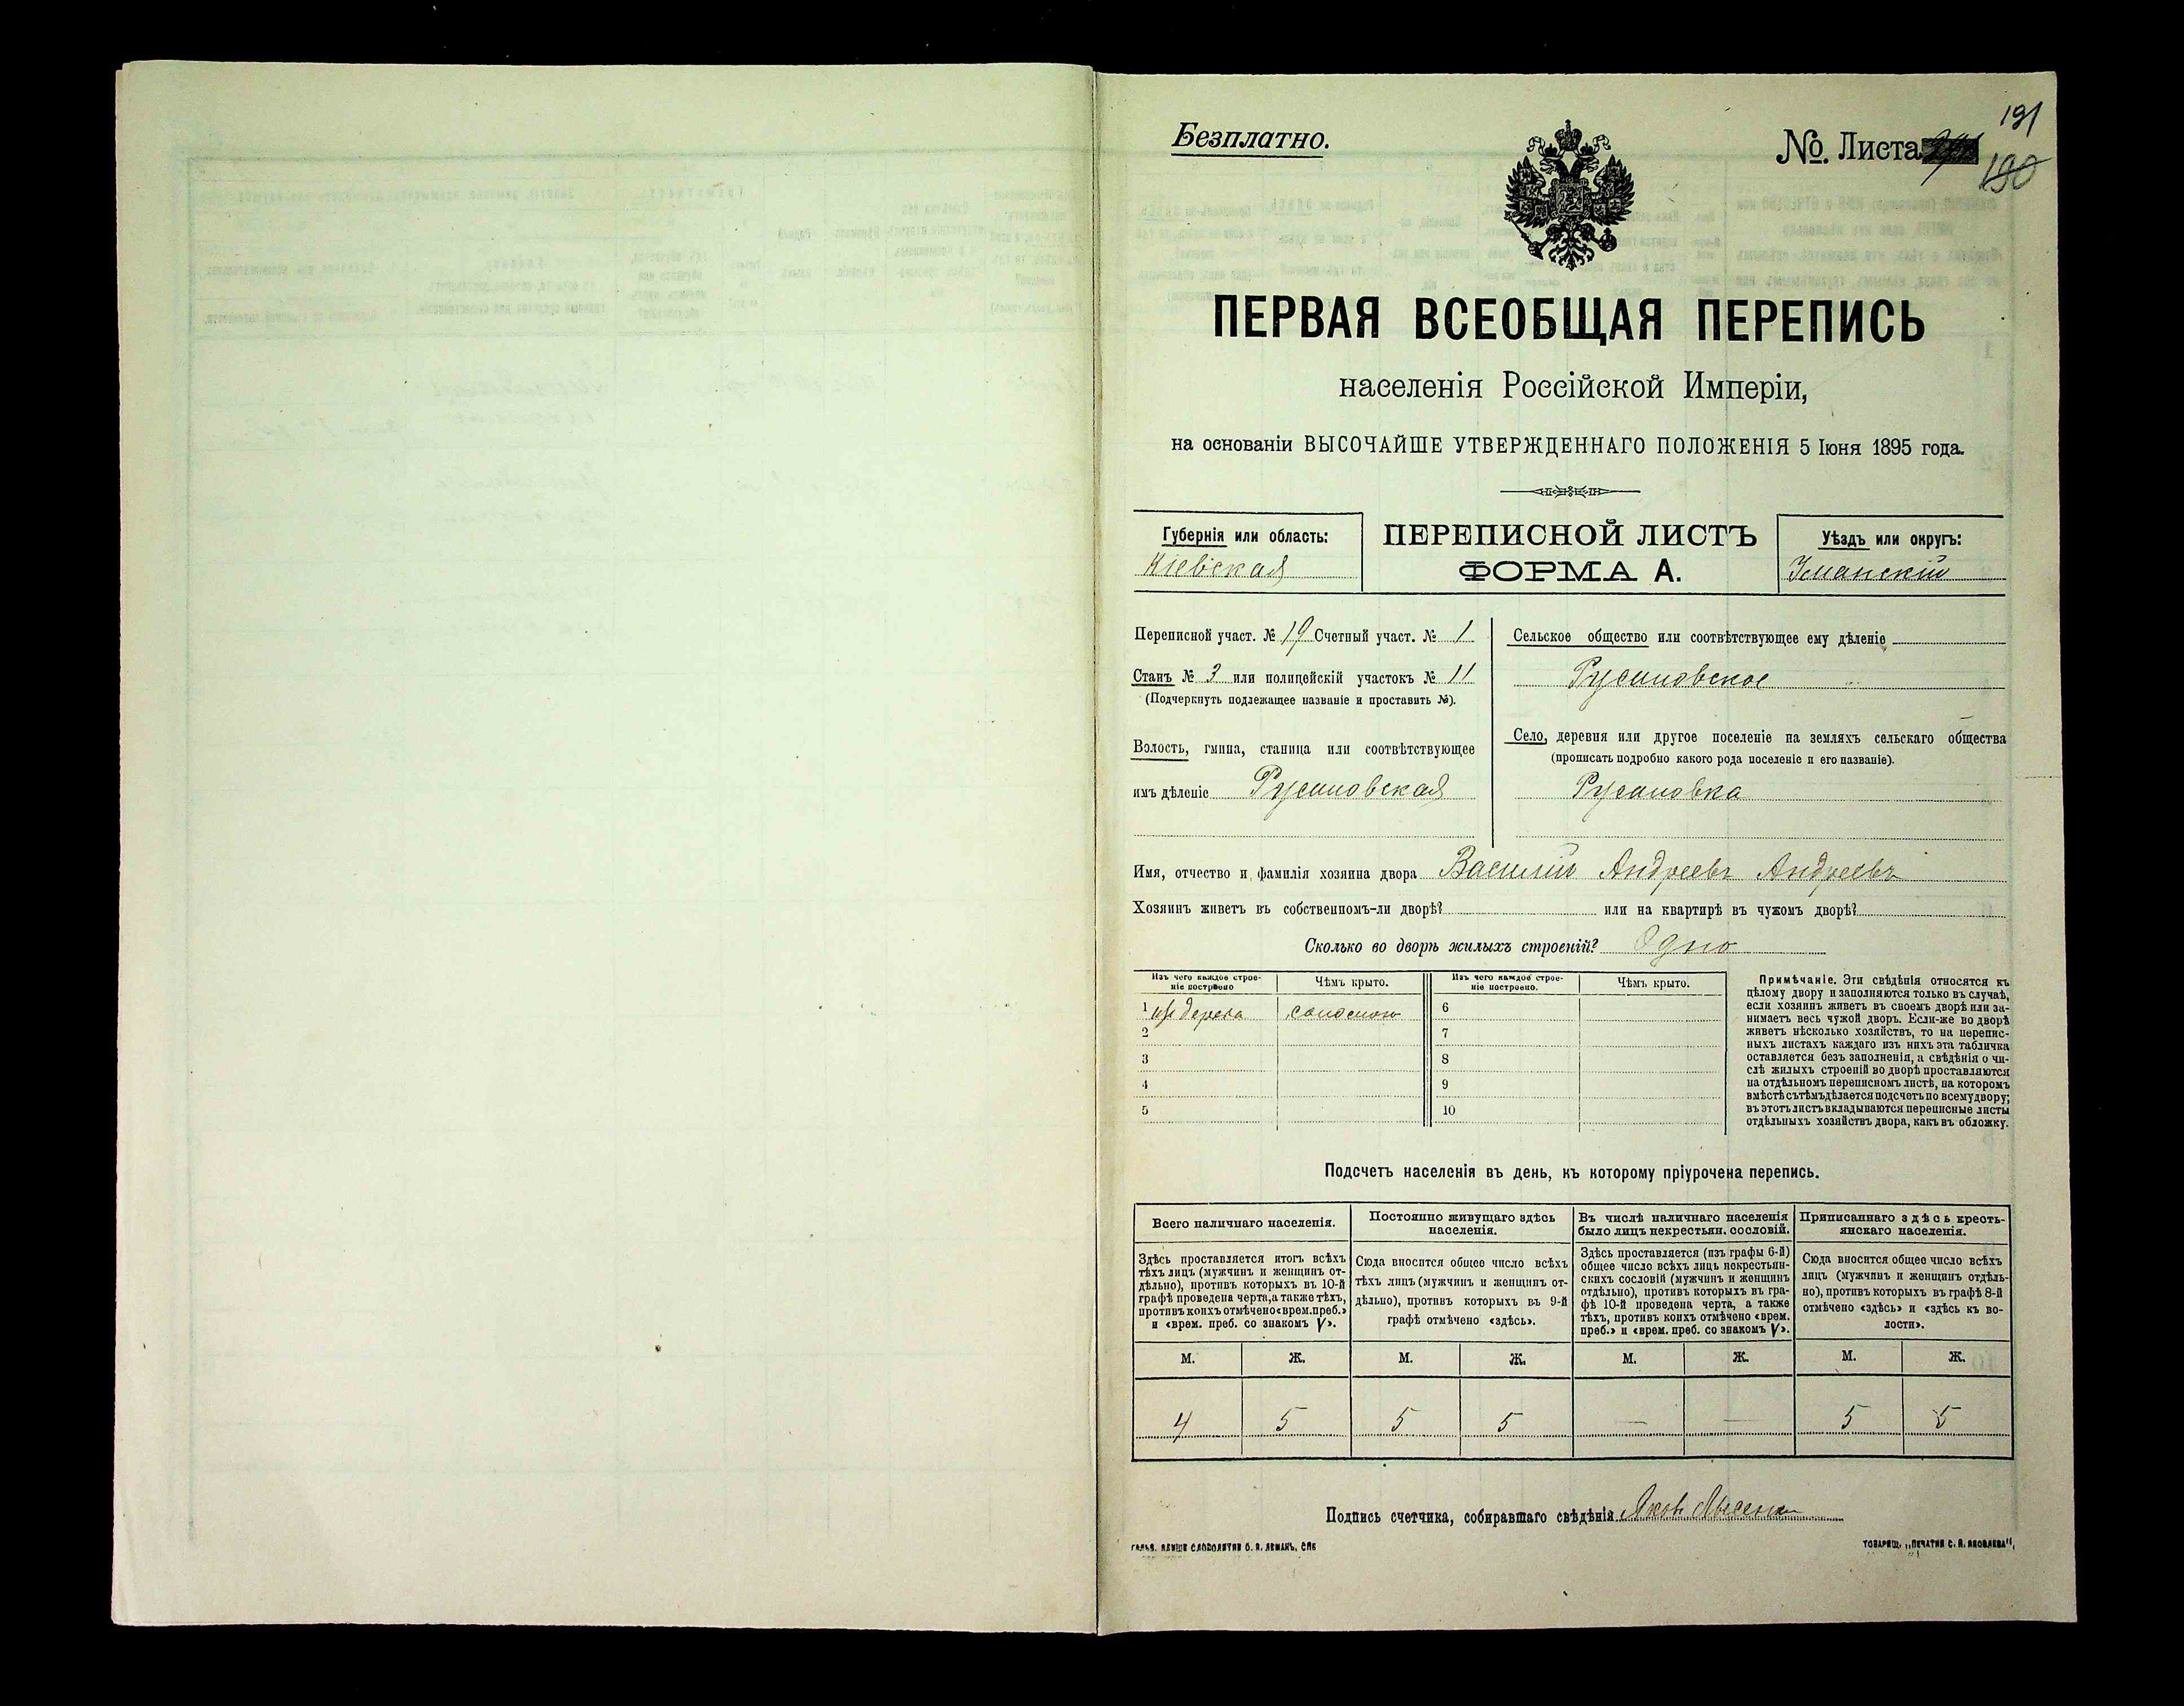 191
Безплатно.
№. Листа
190
ПЕРВАЯ ВСЕОБЩАЯ ПЕРЕПИСЬ
населенія Россійской Имперіи,
на основаніи ВЫСОЧАЙШЕ УТВЕРЖДЕННАГО ПОЛОЖЕНІЯ 5 Іюня 1895 года.
Губернія или область:
Кіевская
ПЕРЕПИСНОЙ ЛИСТЪ
ФОРМА А.
Уѣздъ или округъ:
Уманскій
Переписной участ. № 19 Счетный участ. № 1
Станъ № 3 или полицейскій участокъ № 11
(Подчеркнуть подлежащее названіе и проставить №).
Волость, гмина, станица или соотвѣтствующее
имъ дѣленіе Русановская
Сельское общество или соотвѣтствующее ему дѣленіе
Русановское
Село, деревня или другое поселеніе на земляхъ сельскаго общества
(прописать подробно какого рода поселеніе и его названіе).
Русановка
Имя, отчество и фамилія хозяина двора Василій Андреевъ Андреевъ
Хозяинъ живетъ въ собственномъ-ли дворѣ? или на квартирѣ въ чужомъ дворѣ?
Сколько во дворѣ жилыхъ строеній? Одно
Изъ чего каждое строе-
ніе построено
Чѣмъ крыто.
Изъ чего каждое строе-
ніе построено.
Чѣмъ крыто.
1 изъ дерева соломою 6
2 7
3 8
4 9
5 10
Примѣчаніе. Эти свѣдѣнія относятся къ
цѣлому двору и заполняются только въ случаѣ,
если хозяинъ живетъ въ своемъ дворѣ или за-
нимаетъ весь чужой дворъ. Если-же во дворѣ
живетъ нѣсколько хозяйствъ, то на перепис-
ныхъ листахъ каждаго изъ нихъ эта табличка
оставляется безъ заполненія, а свѣдѣнія о чи-
слѣ жилыхъ строеній во дворѣ проставляются
на отдѣльномъ переписномъ листѣ, на которомъ
вмѣстѣ съ тѣмъ дѣлается подсчетъ по всему двору;
въ этотъ листъ вкладываются переписные листы
отдѣльныхъ хозяйствъ двора, какъ въ обложку.
Подсчетъ населенія въ день, къ которому пріурочена перепись.
Всего наличнаго населенія.
Здѣсь проставляется итогъ всѣхъ
тѣхъ лицъ (мужчинъ и женщинъ от-
дѣльно), противъ которыхъ въ 10-й
графѣ проведена черта, а также тѣхъ,
противъ коихъ отмѣчено «врем. преб.»
и «врем. преб. со знакомъ V».
Постоянно живущаго здѣсь
населенія.
Сюда вносится общее число всѣхъ
тѣхъ лицъ (мужчинъ и женщинъ от-
дѣльно), противъ которыхъ въ 9-й
графѣ отмѣчено «здѣсь».
Въ числѣ наличнаго населенія
было лицъ некрестьян. сословій.
Здѣсь проставляется (изъ графы 6-й)
общее число всѣхъ лицъ некрестьян-
скихъ сословій (мужчинъ и женщинъ
отдѣльно), противъ которыхъ въ гра-
фѣ 10-й проведена черта, а также
тѣхъ, противъ коихъ отмѣчено «врем.
преб.» и «врем. преб. со знакомъ V».
Приписаннаго здѣсь кресть-
янскаго населенія.
Сюда вносится общее число всѣхъ
лицъ (мужчинъ и женщинъ отдѣль-
но), противъ которыхъ въ графѣ 8-й
отмѣчено «здѣсь» и «здѣсь къ во-
лости».
М. Ж. М. Ж. М. Ж. М. Ж.
4 5 5 5 — — 5 5
Подпись счетчика, собиравшаго свѣдѣнія Яковъ
ТОВАРИЩ. „ПЕЧАТНЯ С. П. ЯКОВЛЕВА“,